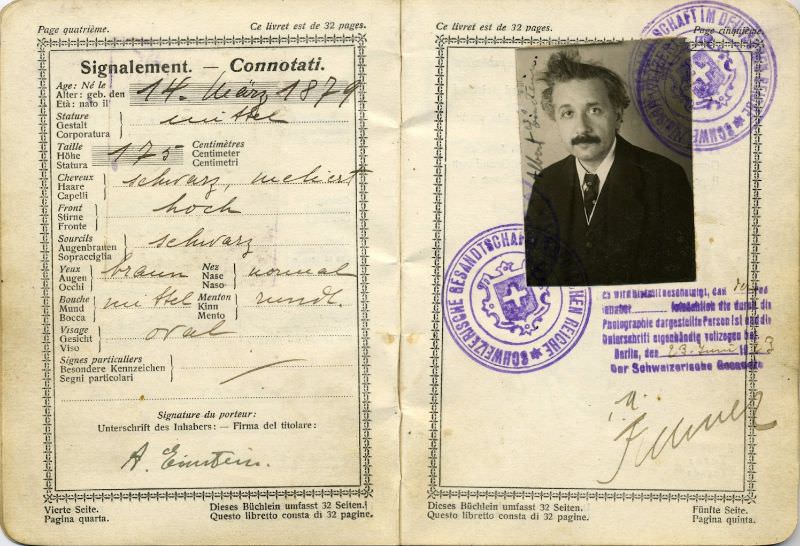 Page quatrième.
Ce livret est de 32 pages.
Signalement. — Connotati.
Age: Né le
Alter: geb. den
Età: nato il
14. März 1879
Stature
Gestalt
Corporatura
mittel
Taille
Höhe
Statura
175
Centimètres
Centimeter
Centimetri
Cheveux
Haare
Capelli
schwarz, meliert
Front
Stirne
Fronte
hoch
Sourcils
Augenbrauen
Sopracciglia
schwarz
Yeux
Augen
Occhi
braun
Nez
Nase
Naso
normal
Bouche
Mund
Bocca
mittel
Menton
Kinn
Mento
rundl.
Visage
Gesicht
Viso
oval
Signes particuliers
Besondere Kennzeichen
Segni particolari
Signature du porteur:
Unterschrift des Inhabers: — Firma del titolare:
A. Einstein.
Vierte Seite.
Pagina quarta.
Dieses Büchlein umfasst 32 Seiten.
Questo libretto consta di 32 pagine.
Ce livret est de 32 pages.
Page cinquième
SCHAFT IM DEUTSCHEN
SCHWEIZERISCHE
Albert Einstein
SCHWEIZERISCHE GESANDTSCHAFT
CHEN REICHE
Es wird hiermit bescheinigt, dass der
die durch die
Photographie dargestellte Person ist und die
Unterschrift eigenhändig vollzogen
Berlin, den 23. Juni 1923
Der Schweizerische Gesandte
Dieses Büchlein umfasst 32 Seiten.
Questo libretto consta di 32 pagine.
Fünfte Seite.
Pagina quinta.